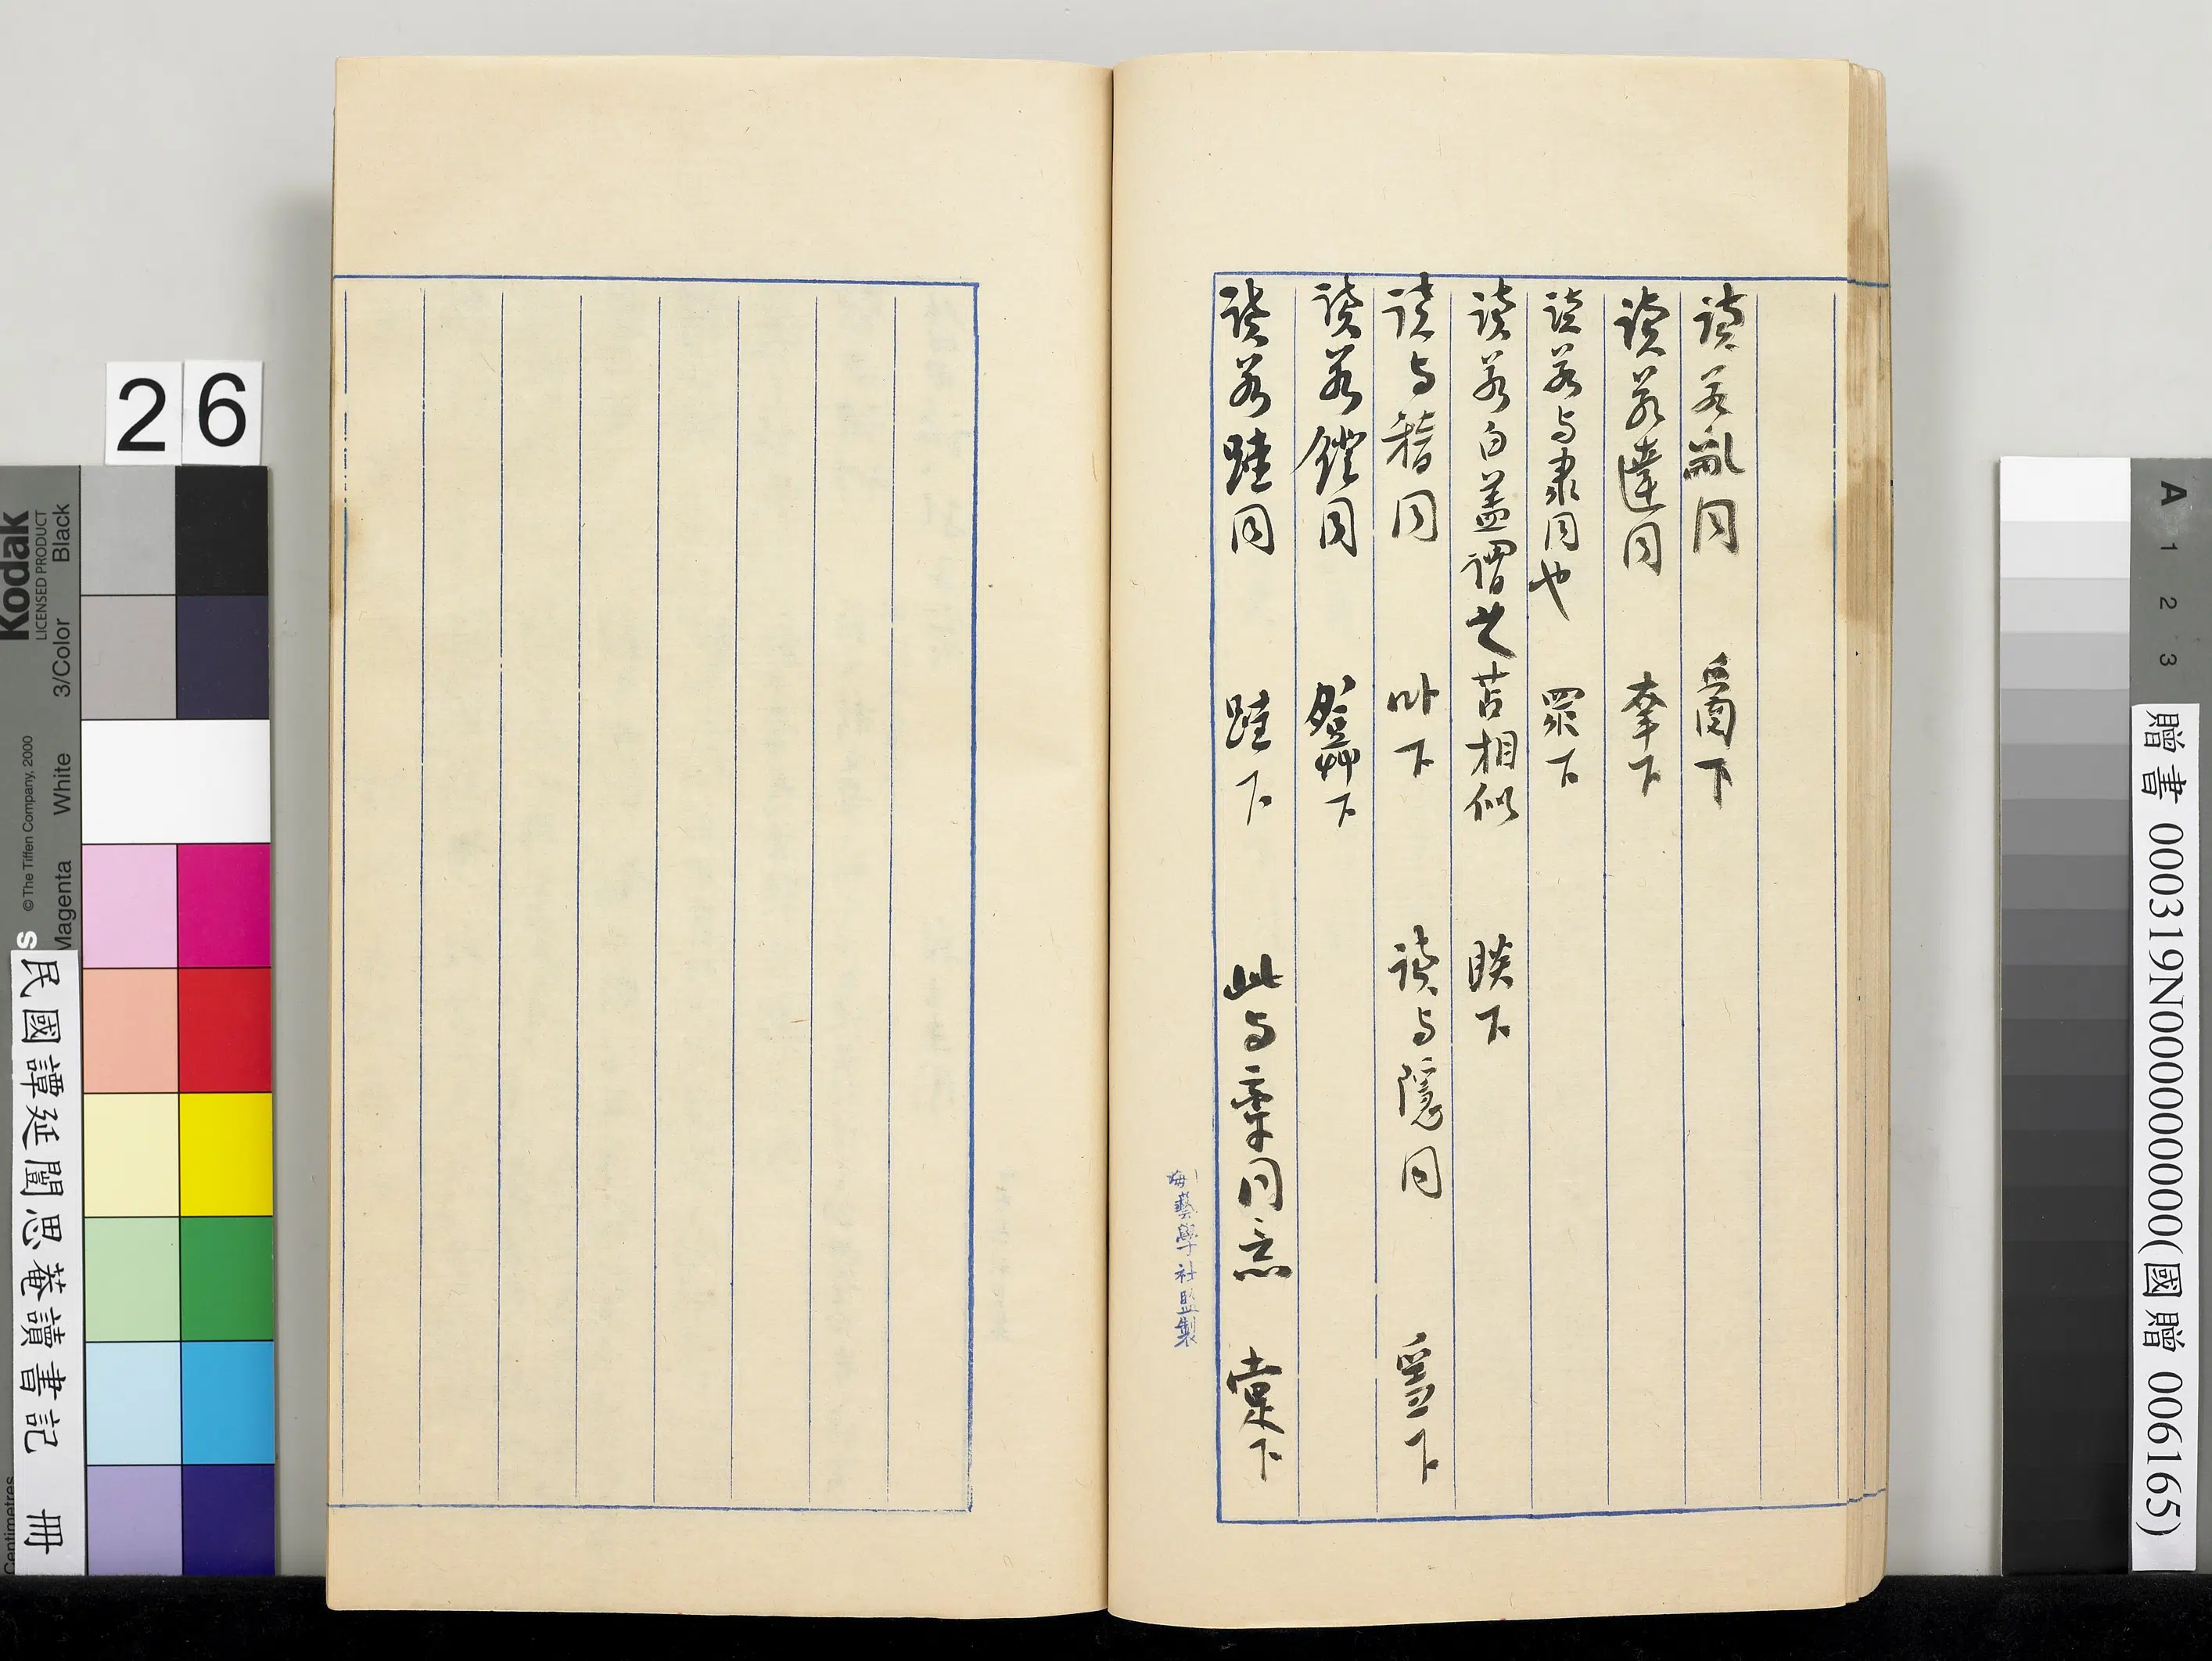 讀若亂同 𤔔下
讀若達同 羍下
讀若与隶同也 眔下
讀若白蓋謂之苫相似 睒下
讀与稽同 卟下 讀与隱同 𤔌下
讀若鐙同 𤼷下
讀若跬同 跬下 此与牽同意 疐下
藝學社監製
26
Kodak
LICENSED PRODUCT
Black
3/Color
White
Magenta
© The Tiffen Company, 2000
Centimetres
民國譚延闓思菴讀書記 冊
A 1 2 3
贈書 000319N000000000(國贈 006165)